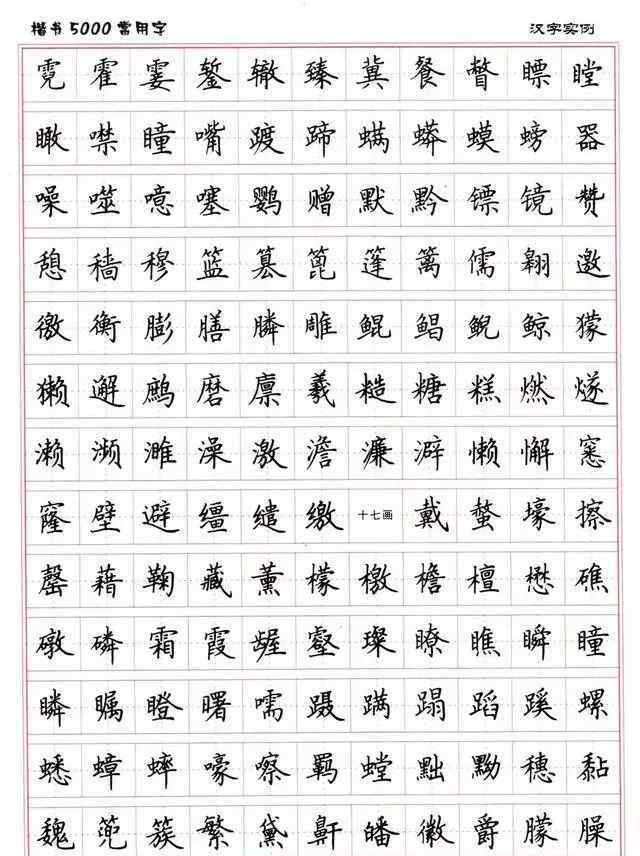 楷书5000常用字 汉字实例
霓霍霎錾辙臻冀餐瞥瞟瞠
瞰噤瞳嘴踱蹄螨蟒蟆螃器
噪噬噫噻鹦赠默黔镖镜赞
憩穑穆篮篡篦篷篱儒翱邀
徼衡膨膳膦雕鲲鲳鲵鲸獴
獭邂鹧磨廪羲糙糖糕燃燧
濑濒濉澡激澹濂澼懒懈窸
窿壁避缰缱缴十七画戴螫壕擦
罄藉鞠藏薰檬檄檐檀懋礁
礅磷霜霞龌壑璨瞭瞧瞬瞳
瞵瞩瞪曙嚅蹑蹒蹋蹈蹊螺
蟋蟑蟀嚎嚓羁螳黜黝穗黏
魏篼簇繁黛鼾皤徽爵朦臊